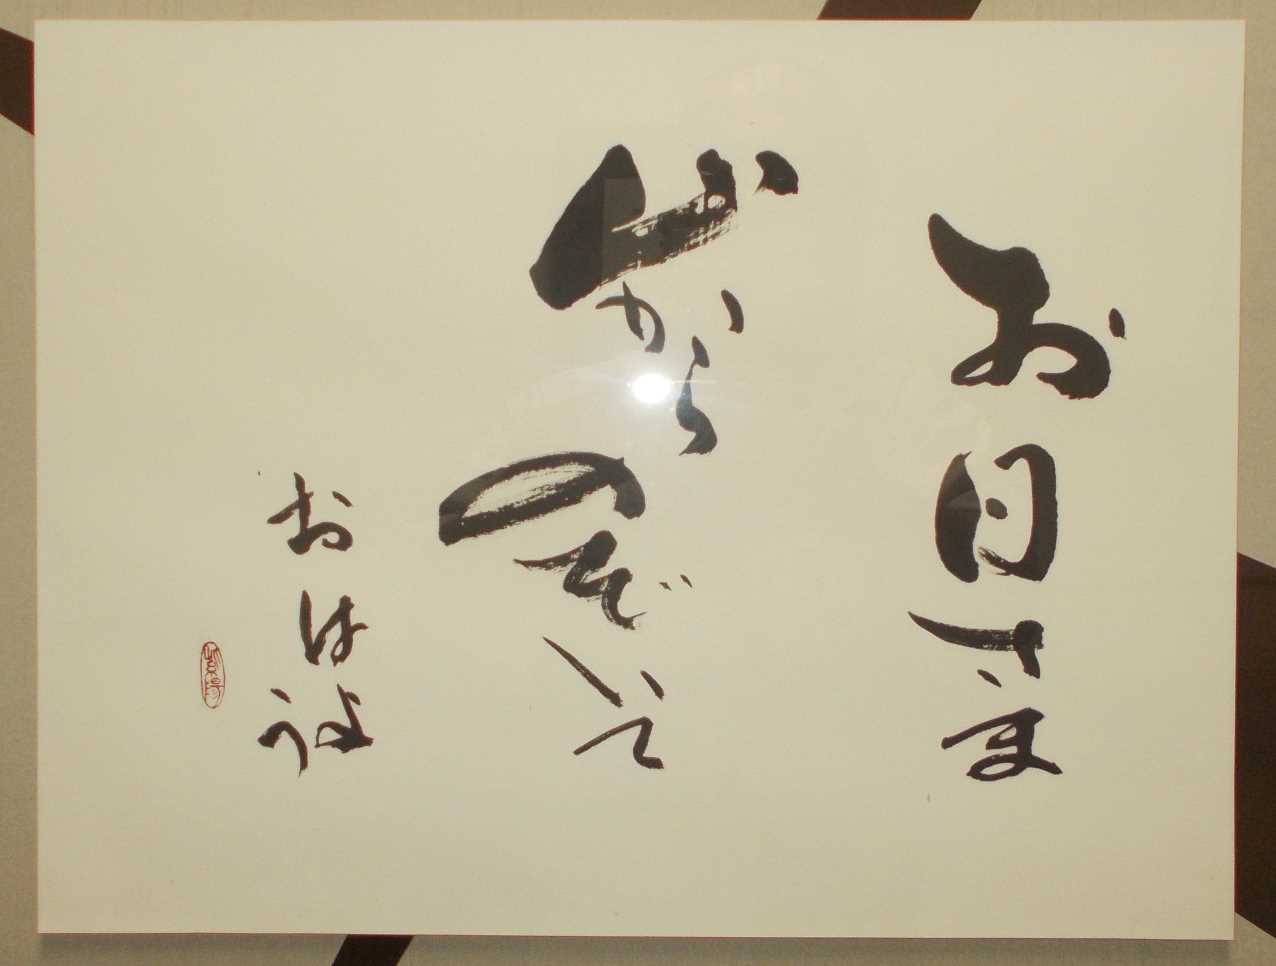 お日さま
山からのぞいて
おはよう